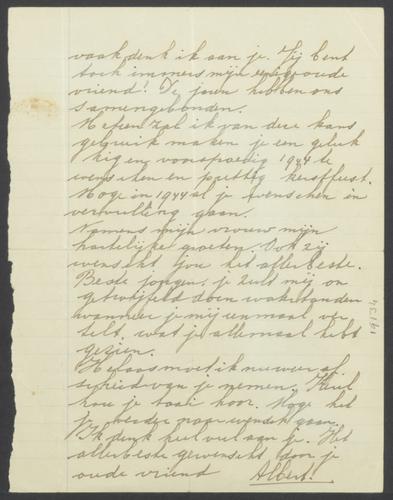 vaak denk ik aan je. Jij bent
toch immers mijn oude
vriend! De jaren hebben ons
samengebonden.
Meteen zal ik van deze kans
gebruik maken je een geluk
kig en voorspoedig 1944 te
wenschen en prettig kerstfeest.
Moge in 1944 al je wenschen in
vervulling gaan.
Namens mijn vrouw mijn
hartelijke groeten. Ook zij
wenscht jou het allerbeste.
Beste jongen, je zult mij on
getwijfeld doen watertanden
wanneer je mij eenmaal ver
telt, wat je allemaal hebt
gezien.
Helaas moet ik nu weer af
scheid van je nemen. Kerel
hou je taai hoor. Moge het
je verder naar wensch gaan.
Ik denk heel veel aan je. Het
allerbeste gewenscht door je
oude vriend Albert.